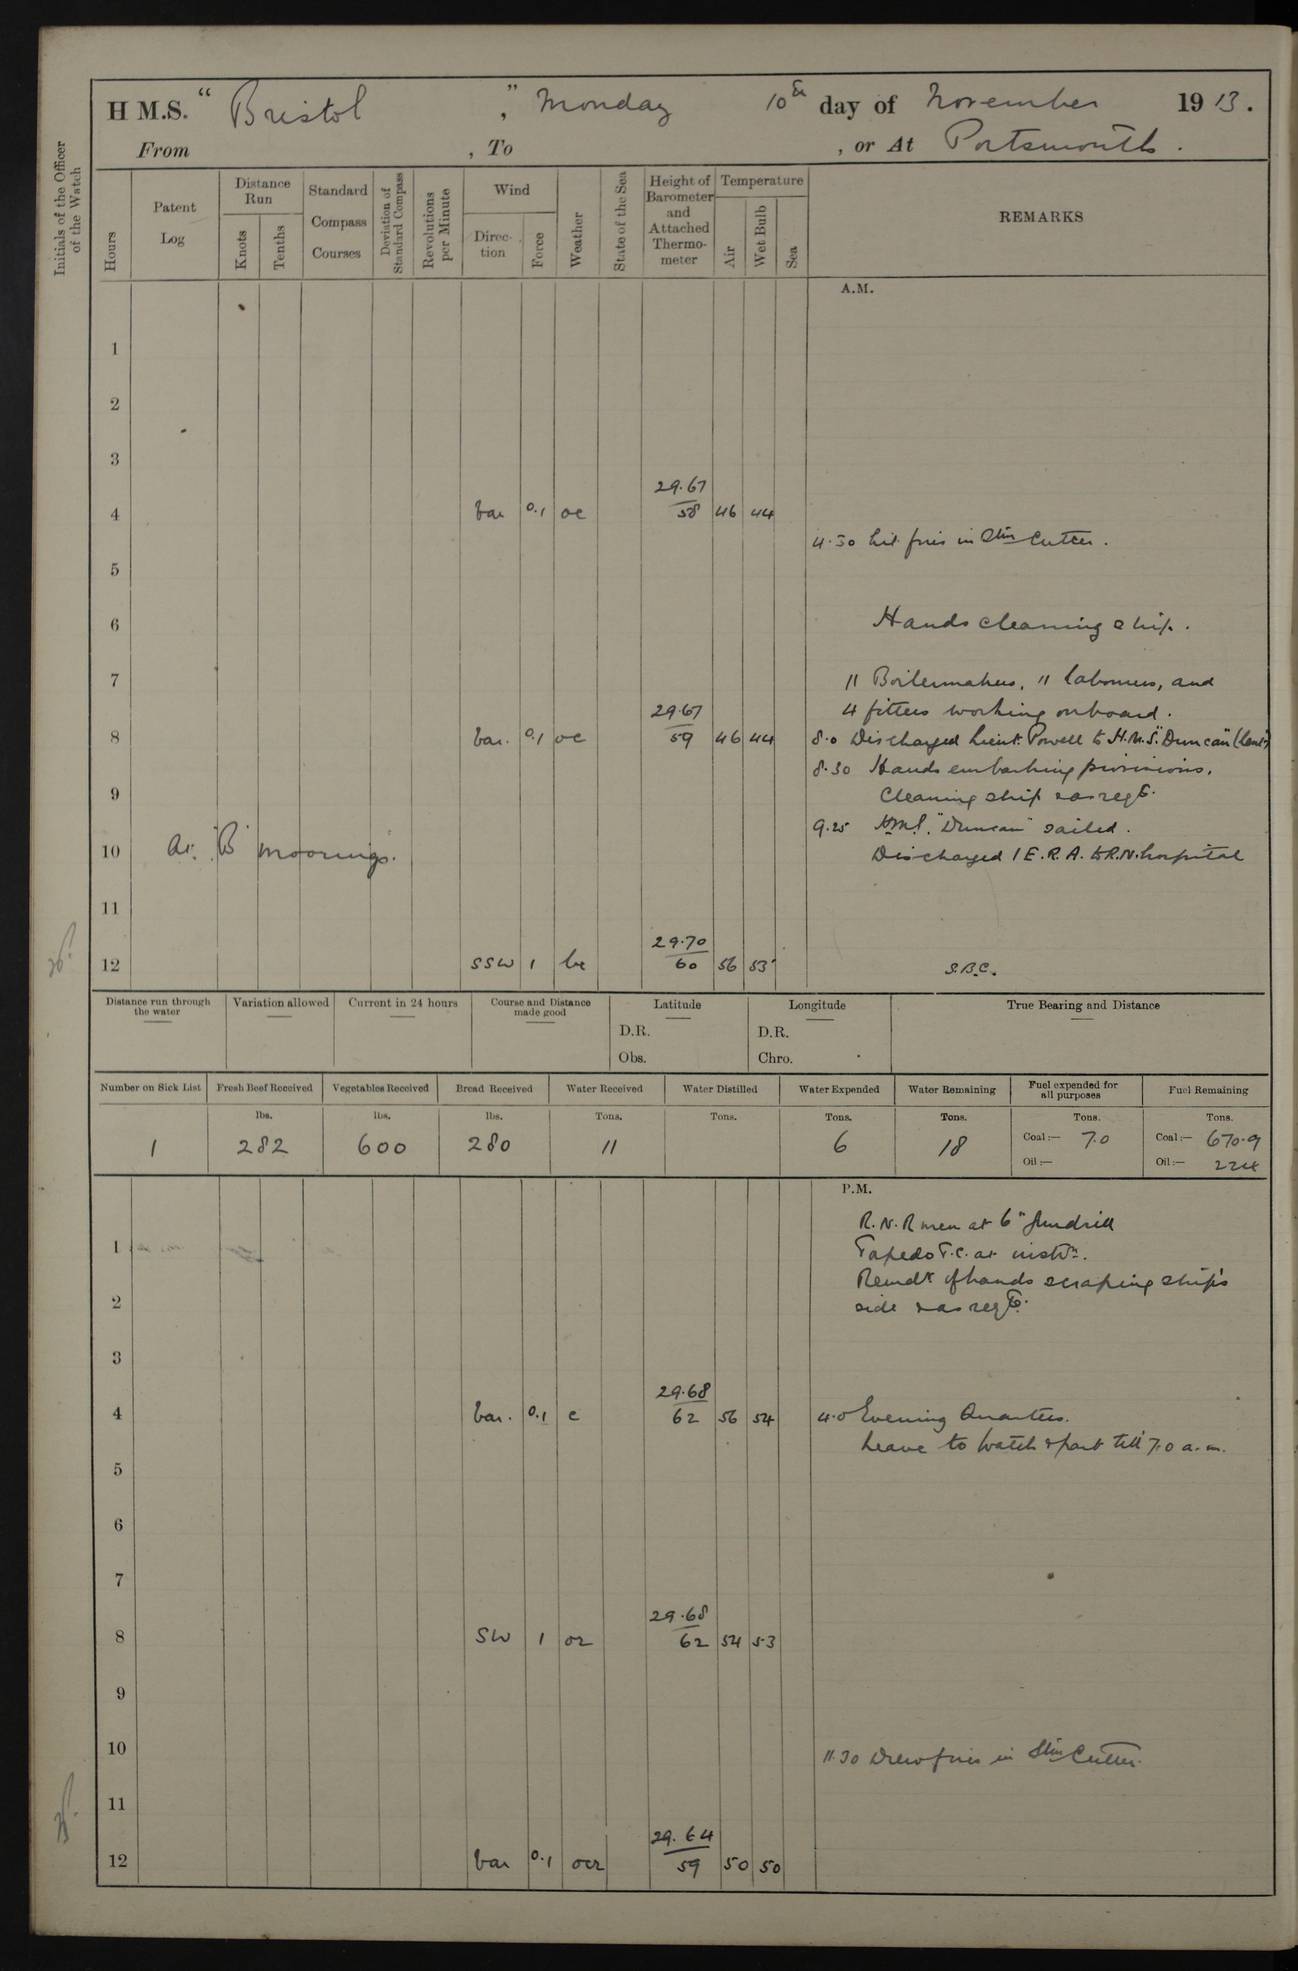 H M.S. “ Bristol ,” Monday 10th day of November 19 13.
From , To , or At Portsmouth.
Initials of the Officer of the Watch
Hours
Patent Log
Distance Run
Knots
Tenths
Standard Compass Courses
Deviation of Standard Compass
Revolutions per Minute
Wind
Direction
Force
Weather
State of the Sea
Height of Barometer and Attached Thermometer
Temperature
Air
Wet Bulb
Sea
REMARKS
A.M.
1
2
3
29.67
4 Var 0.1 oc 58 46 44
4.30 Lit fires in Stm Cutter.
5
6 Hands cleaning ship.
7 11 Boilermakers, 11 labourers, and
29.67 4 fitters working onboard.
8 Var. 0.1 oc 59 46 44 8.0 Discharged Lieut. Powell to H.M.S. "Duncan"
8.30 Hands embarking provisions.
9 Cleaning ship & as reqd.
9.25 H.M.S. "Duncan" sailed.
10 At "B" moorings. Discharged 1 E.R.A. to R.N. hospital
11
29.70
12 SSW 1 bc 60 56 53 S.B.C.
Distance run through the water
Variation allowed
Current in 24 hours
Course and Distance made good
Latitude
D.R.
Obs.
Longitude
D.R.
Chro.
True Bearing and Distance
Number on Sick List Fresh Beef Received Vegetables Received Bread Received Water Received Water Distilled Water Expended Water Remaining Fuel expended for all purposes Fuel Remaining
lbs. lbs. lbs. Tons. Tons. Tons. Tons. Tons. Tons.
1 282 600 280 11 6 18 Coal:— 7.0 Coal:— 670.9
Oil:— Oil:— 224
P.M.
R.N.R men at 6" Gundrill
1 Torpedo T.C. at instn.
Remdr of hands scraping ship's
2 side & as reqd.
3
29.68
4 Var. 0.1 c 62 56 54 4.0 Evening Quarters.
Leave to Watch & part till 7.0 a.m.
5
6
7
29.68
8 SW 1 or 62 54 53
9
10 11.30 Drew fires in Stm Cutter.
11
29.64
12 Var 0.1 ocr 59 50 50